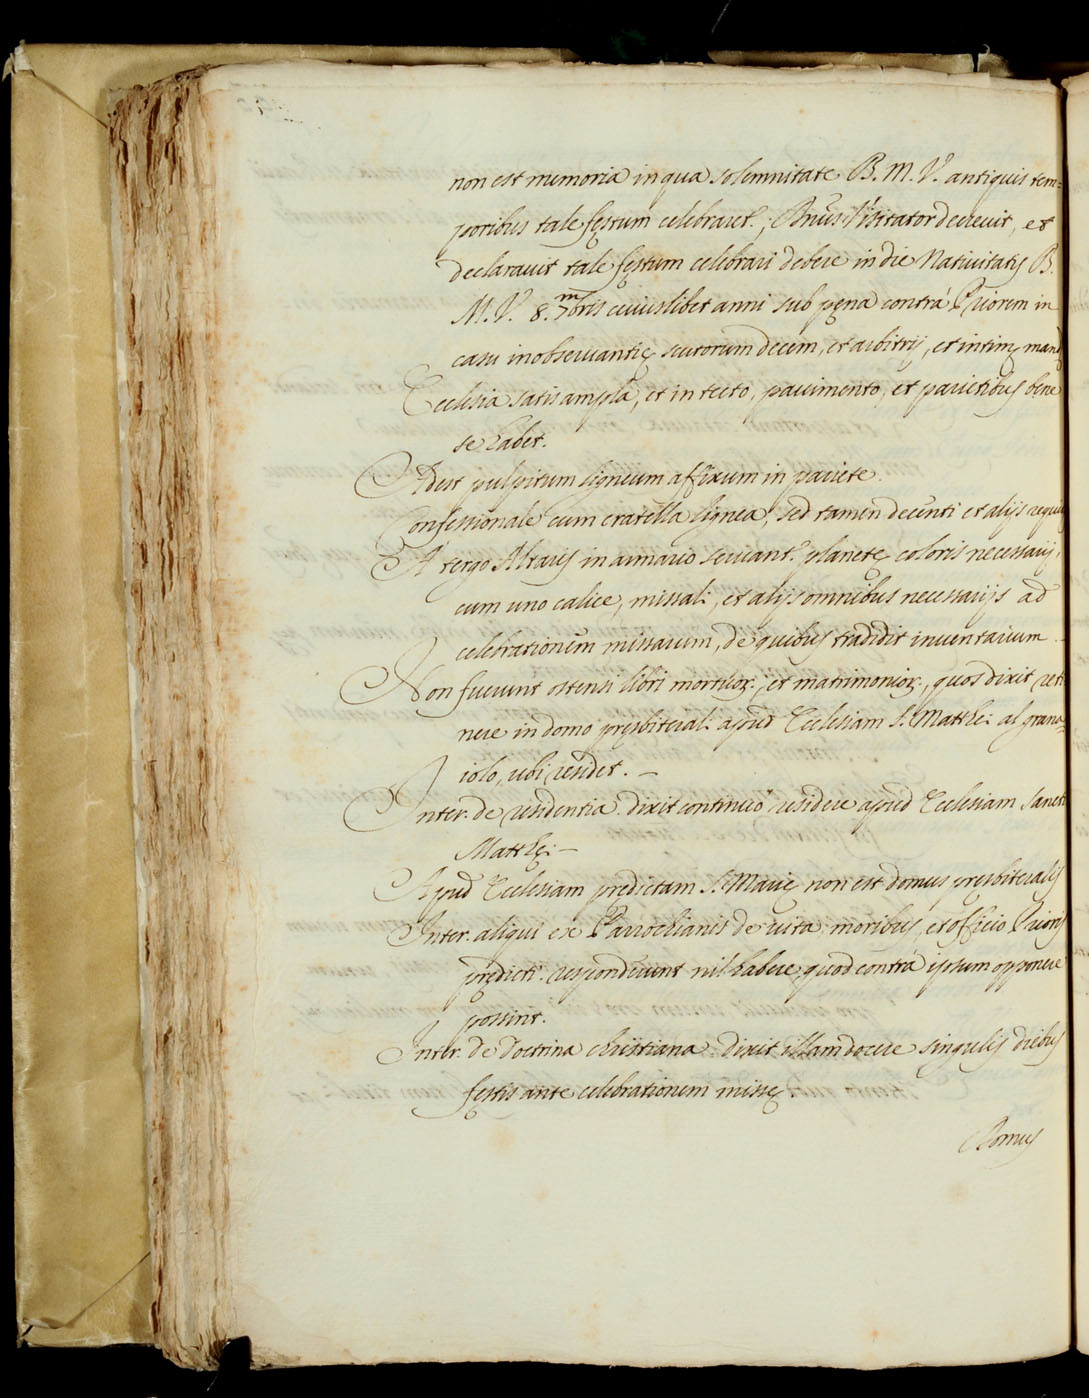 non est memoria in qua solemnitate B. M. V. antiquis tem=
poribus tale festum celebraret.; Dnus Visitator decreuit, et
declarauit tale festum celebrari debere in die Natiuitatis B.
M. V. 8. 7mbris cuiuslibet anni sub pena contrà Priorem in
casu inobseruantię scutorum decem, et arbitrij, et intimę mand
Ecclesia satis ampla, et in tecto, pauimento, et parietibus bene
se habet.
Adest pulpitum ligneum affixum in pariete.
Confessionale cum cratella lignea, sed tamen decenti et alijs requis
A tergo Altaris in armario seruant.r planetę coloris necessarij,
cum uno calice, missali, et alijs omnibus necessarijs ad
celebrationem missarum, de quibus tradidit inuentarium
Non fuerunt ostensi libri mortuor., et matrimonior., quos dixit reti
nere in domo presbiterali apud Ecclesiam S. Matthei al grana=
iolo, ubi residet. –
Inter. de residentia dixit continuò residere apud Ecclesiam Sancti
Matthęi –
Apud Ecclesiam predictam S. Marię non est domus presbiteralis
Inter. aliqui ex Parrochianis de uita, moribus, et officio Prioris
prędicti responderunt nil habere, quod contrà ipsum opponere
possint.
Inter. de Doctrina christiana dixit illam docere singulis diebus
festis ante celebrationem missę.
Domus